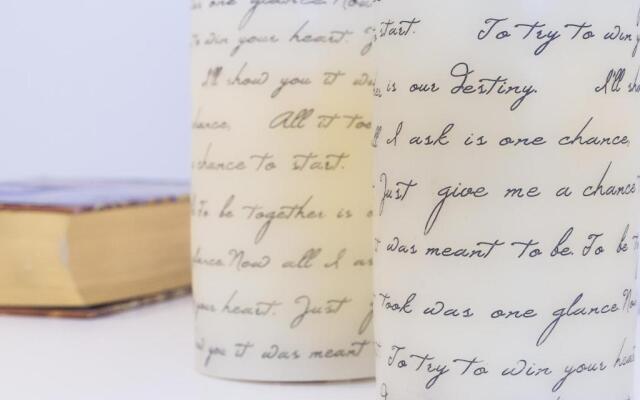 one glance Now
to win your heart.
I'll show you it was
chance, All it took
chance to start.
To be together is
glance Now all I ask
your heart. Just
you it was meant
start. To try to win
is our Destiny. I'll show
I ask is one chance,
Just give me a chance
was meant to be. To be
took was one glance No
To try to win your heart